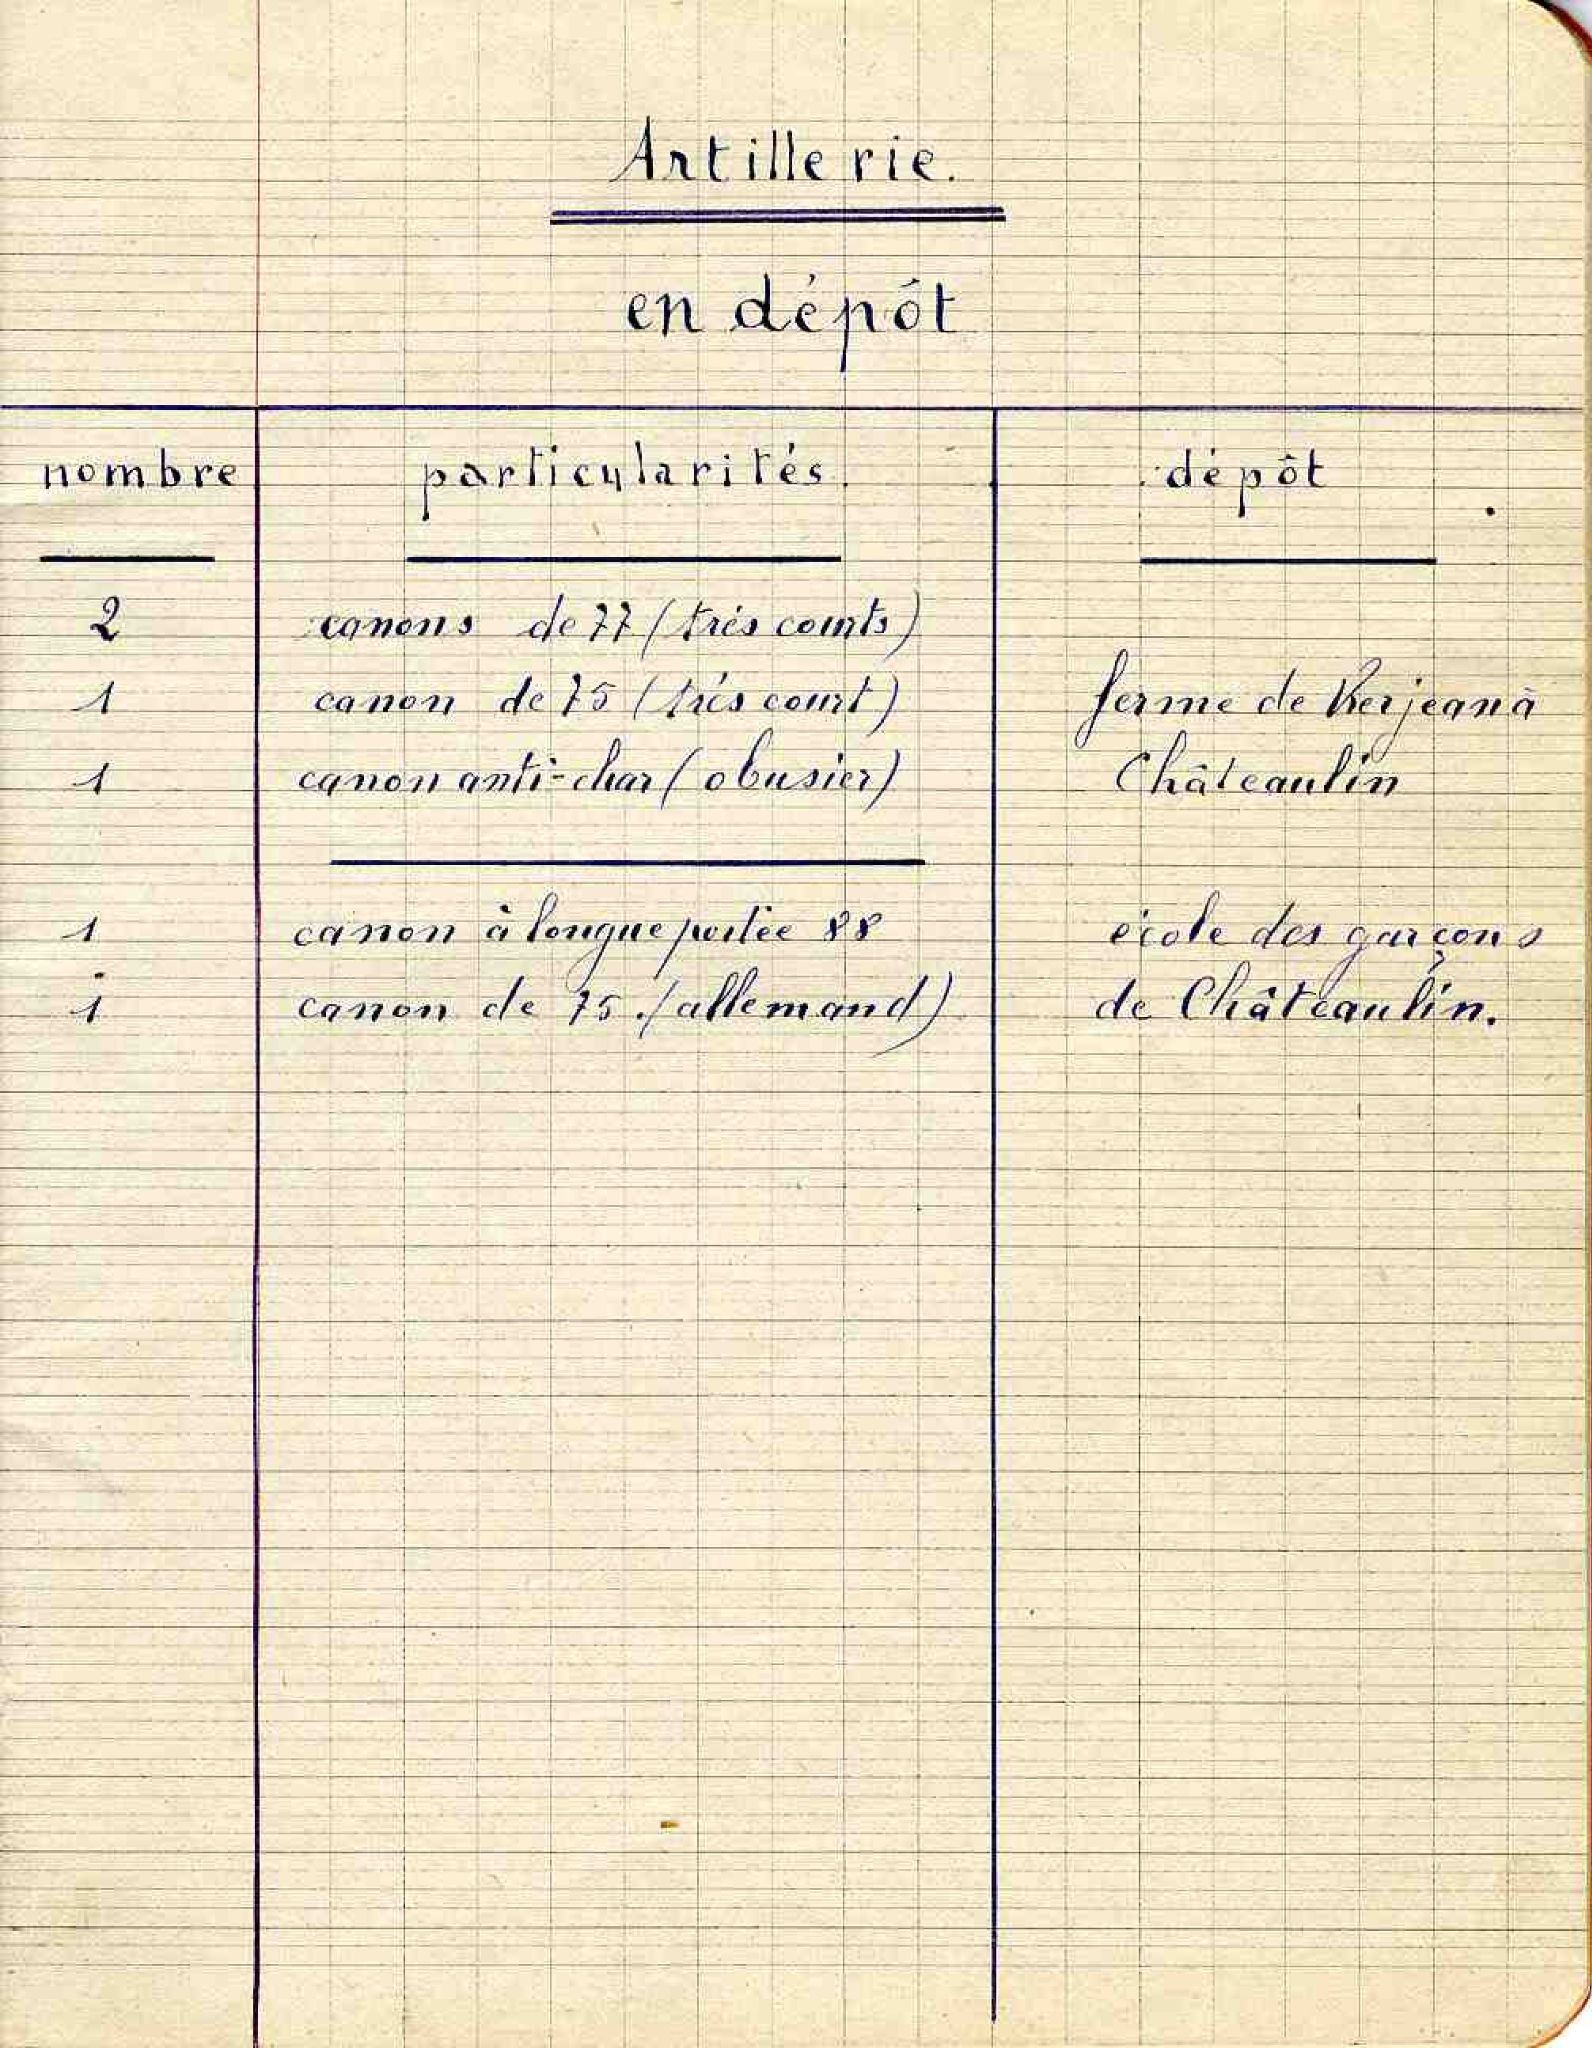 Artillerie.
en dépôt
nombre particularités. dépôt
2 canons de 77 (très courts)
1 canon de 75 (très court) ferme de Kerjean à
1 canon anti-char (obusier) Châteaulin
1 canon à longue portée 88 école des garçons
1 canon de 75. (allemand) de Châteaulin.